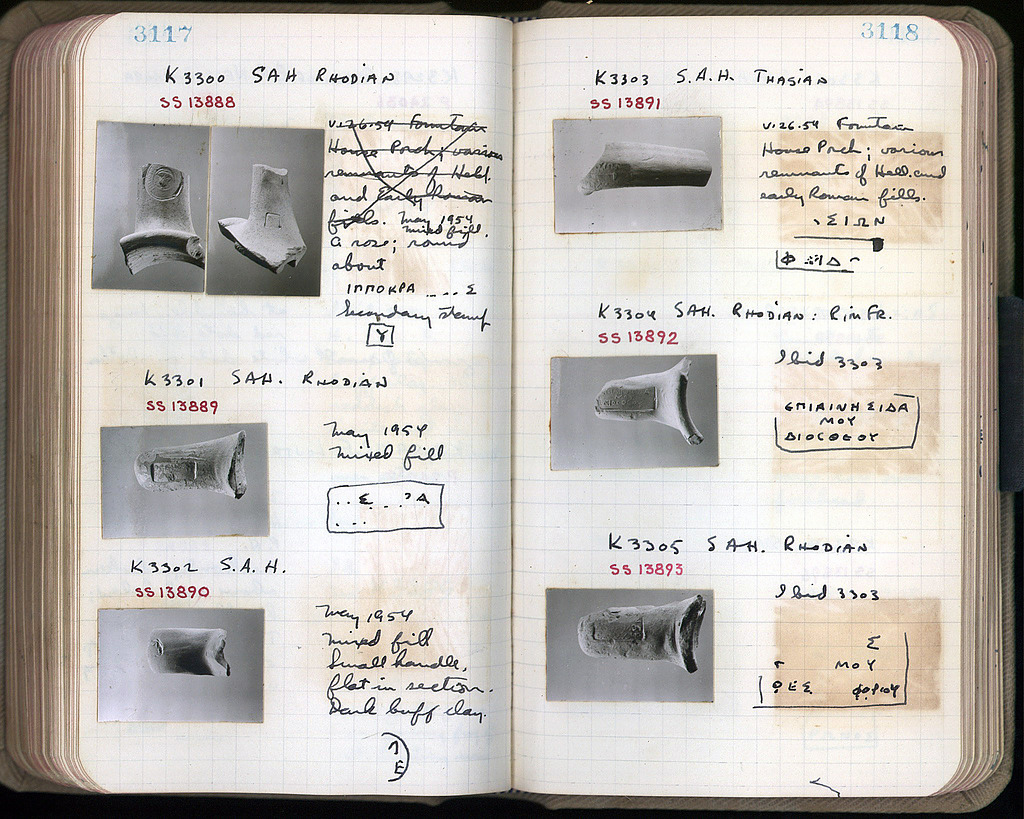 3117
K3300 SAH RHODIAN
SS 13888
v.26.54 Fountain
House Porch; various
remnants of Hell.
and Early Roman
fills. May 1954
mixed fill.
A rose; round
about
ΙΠΠΟΚΡΑ .... Σ
Secondary stamp
K3301 SAH. RHODIAN
SS 13889
May 1954
mixed fill
..Σ...
...
K3302 S.A.H.
SS 13890
May 1954
mixed fill
Small handle,
flat in section.
Dark buff clay.
3118
K3303 S.A.H. THASIAN
SS 13891
v.26.54 Fountain
House Porch; various
remnants of Hell. and
early Roman fills.
ΣΙΩΝ
K3304 SAH. RHODIAN: RIM FR.
SS 13892
Ibid 3303
ЄΠΙΑΙΝΗΣΙΔΑ
ΜΟΥ
ΔΙΟCΘΕΟΥ
K3305 SAH. RHODIAN
SS 13893
Ibid 3303
Σ
ΜΟΥ
ΕΣ ΦΟΡΙΟΥ